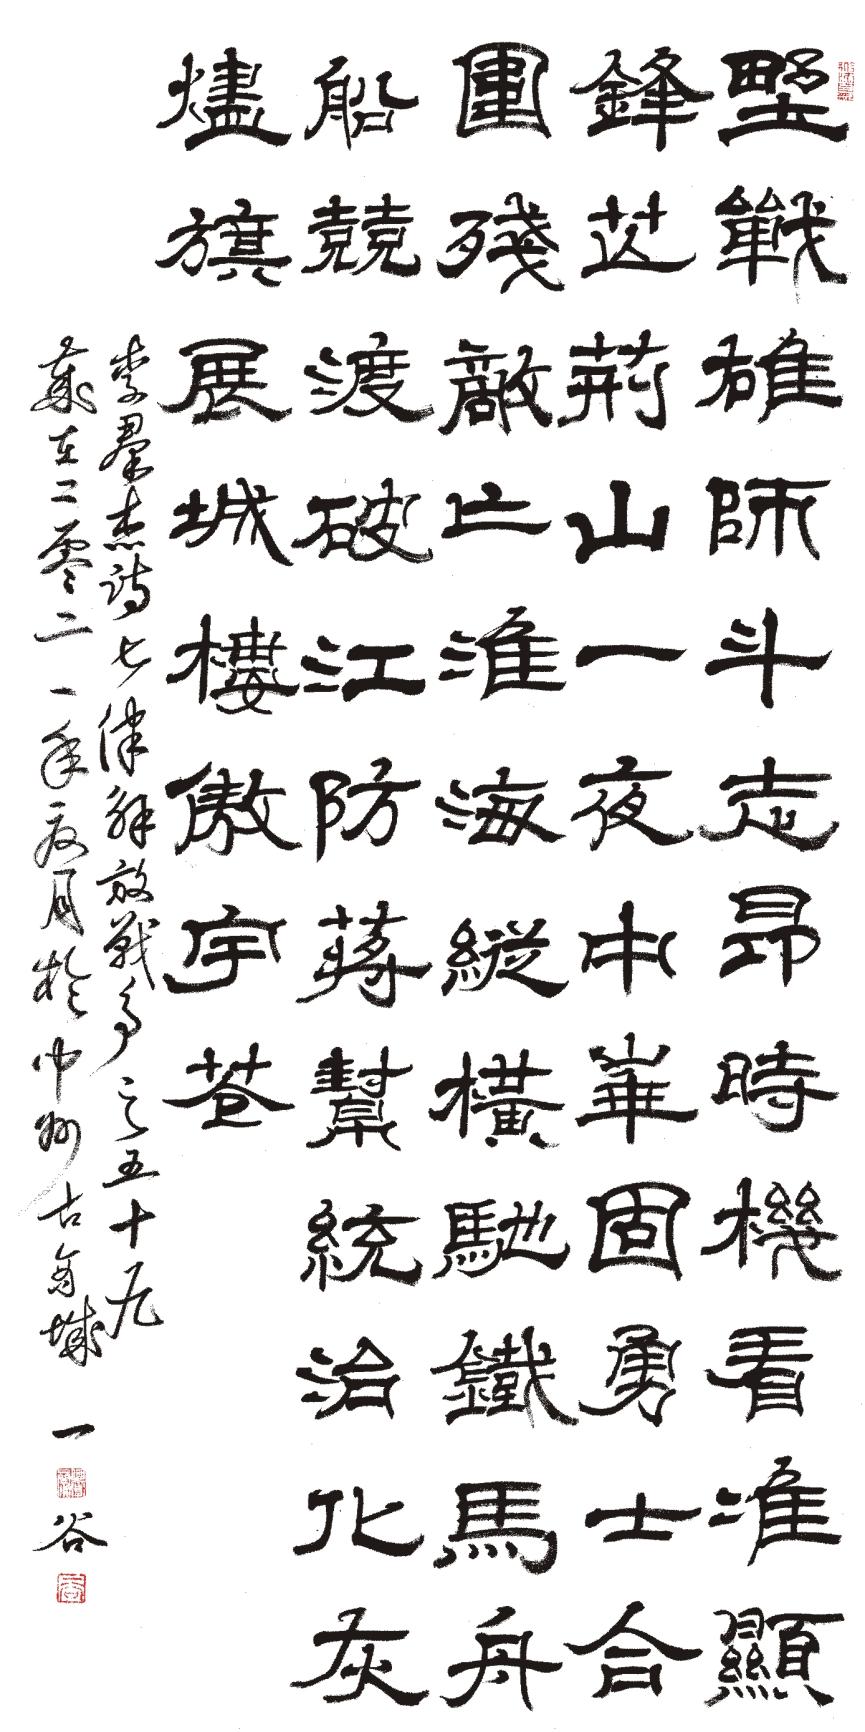 野戰雄師斗志昂時機看准顯
鋒芒荊山一夜中峯固勇士合
圍殘敵亡淮海縱橫馳鐵馬舟
船競渡破江防蔣幫統治化灰
燼旗展城樓傲宇蒼
李羣杰詩七律解放戰爭之五十九
歲在二零二一年夏月於中州古
城一谷